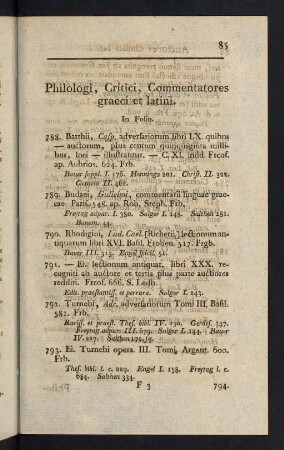 85
Philologi, Critici, Commentatores
graeci et latini.
In Folio.
788. Barthii, Casp. adversariorum libri LX. quibus
— auctorum, plus centum quinquaginta milli-
bus, loci — illustrantur. — C. XI. indd. Frcof.
ap. Aubrios. 624. Frb.
Bauer suppl. I. 176. Hennings 201. Christ. II. 322.
Clement II. 462.
789. Budaei, Gulielmi, commentarii linguae grae-
cae. Paris. 548. ap. Rob. Steph. Frb.
Freytag adpar. I. 380. Solger I. 148. Salthen 281.
Hamm. 44.
790. Rhodigini, Lud. Cael. [Richerii,] lectionum an-
tiquarum libri XVI. Basil. Froben. 517. Prgb.
Bauer III. 313. Engel spicil. 51.
791. — Ei. lectionum antiquar. libri XXX. re-
cogniti ab auctore et tertia plus parte auctiores
redditi. Frcof. 666. S. Ledb.
Edit. praestantiss. et perrara. Solger I. 143.
792. Turnebi, Adr. adversariorum Tomi III. Basil.
581. Frb.
Rariss. et praest. Thes. bibl. IV. 230. Gerdes. 347.
Freytag adpar. III. 699. Solger I. 142. Bauer
IV. 217. Salthen 278. sq.
793. Ei. Turnebi opera. III. Tomi, Argent. 600.
Frb.
Thes. bibl. l. c. 229. Engel I. 158. Freytag l. c.
684. Salthen 334.
F 3 794.